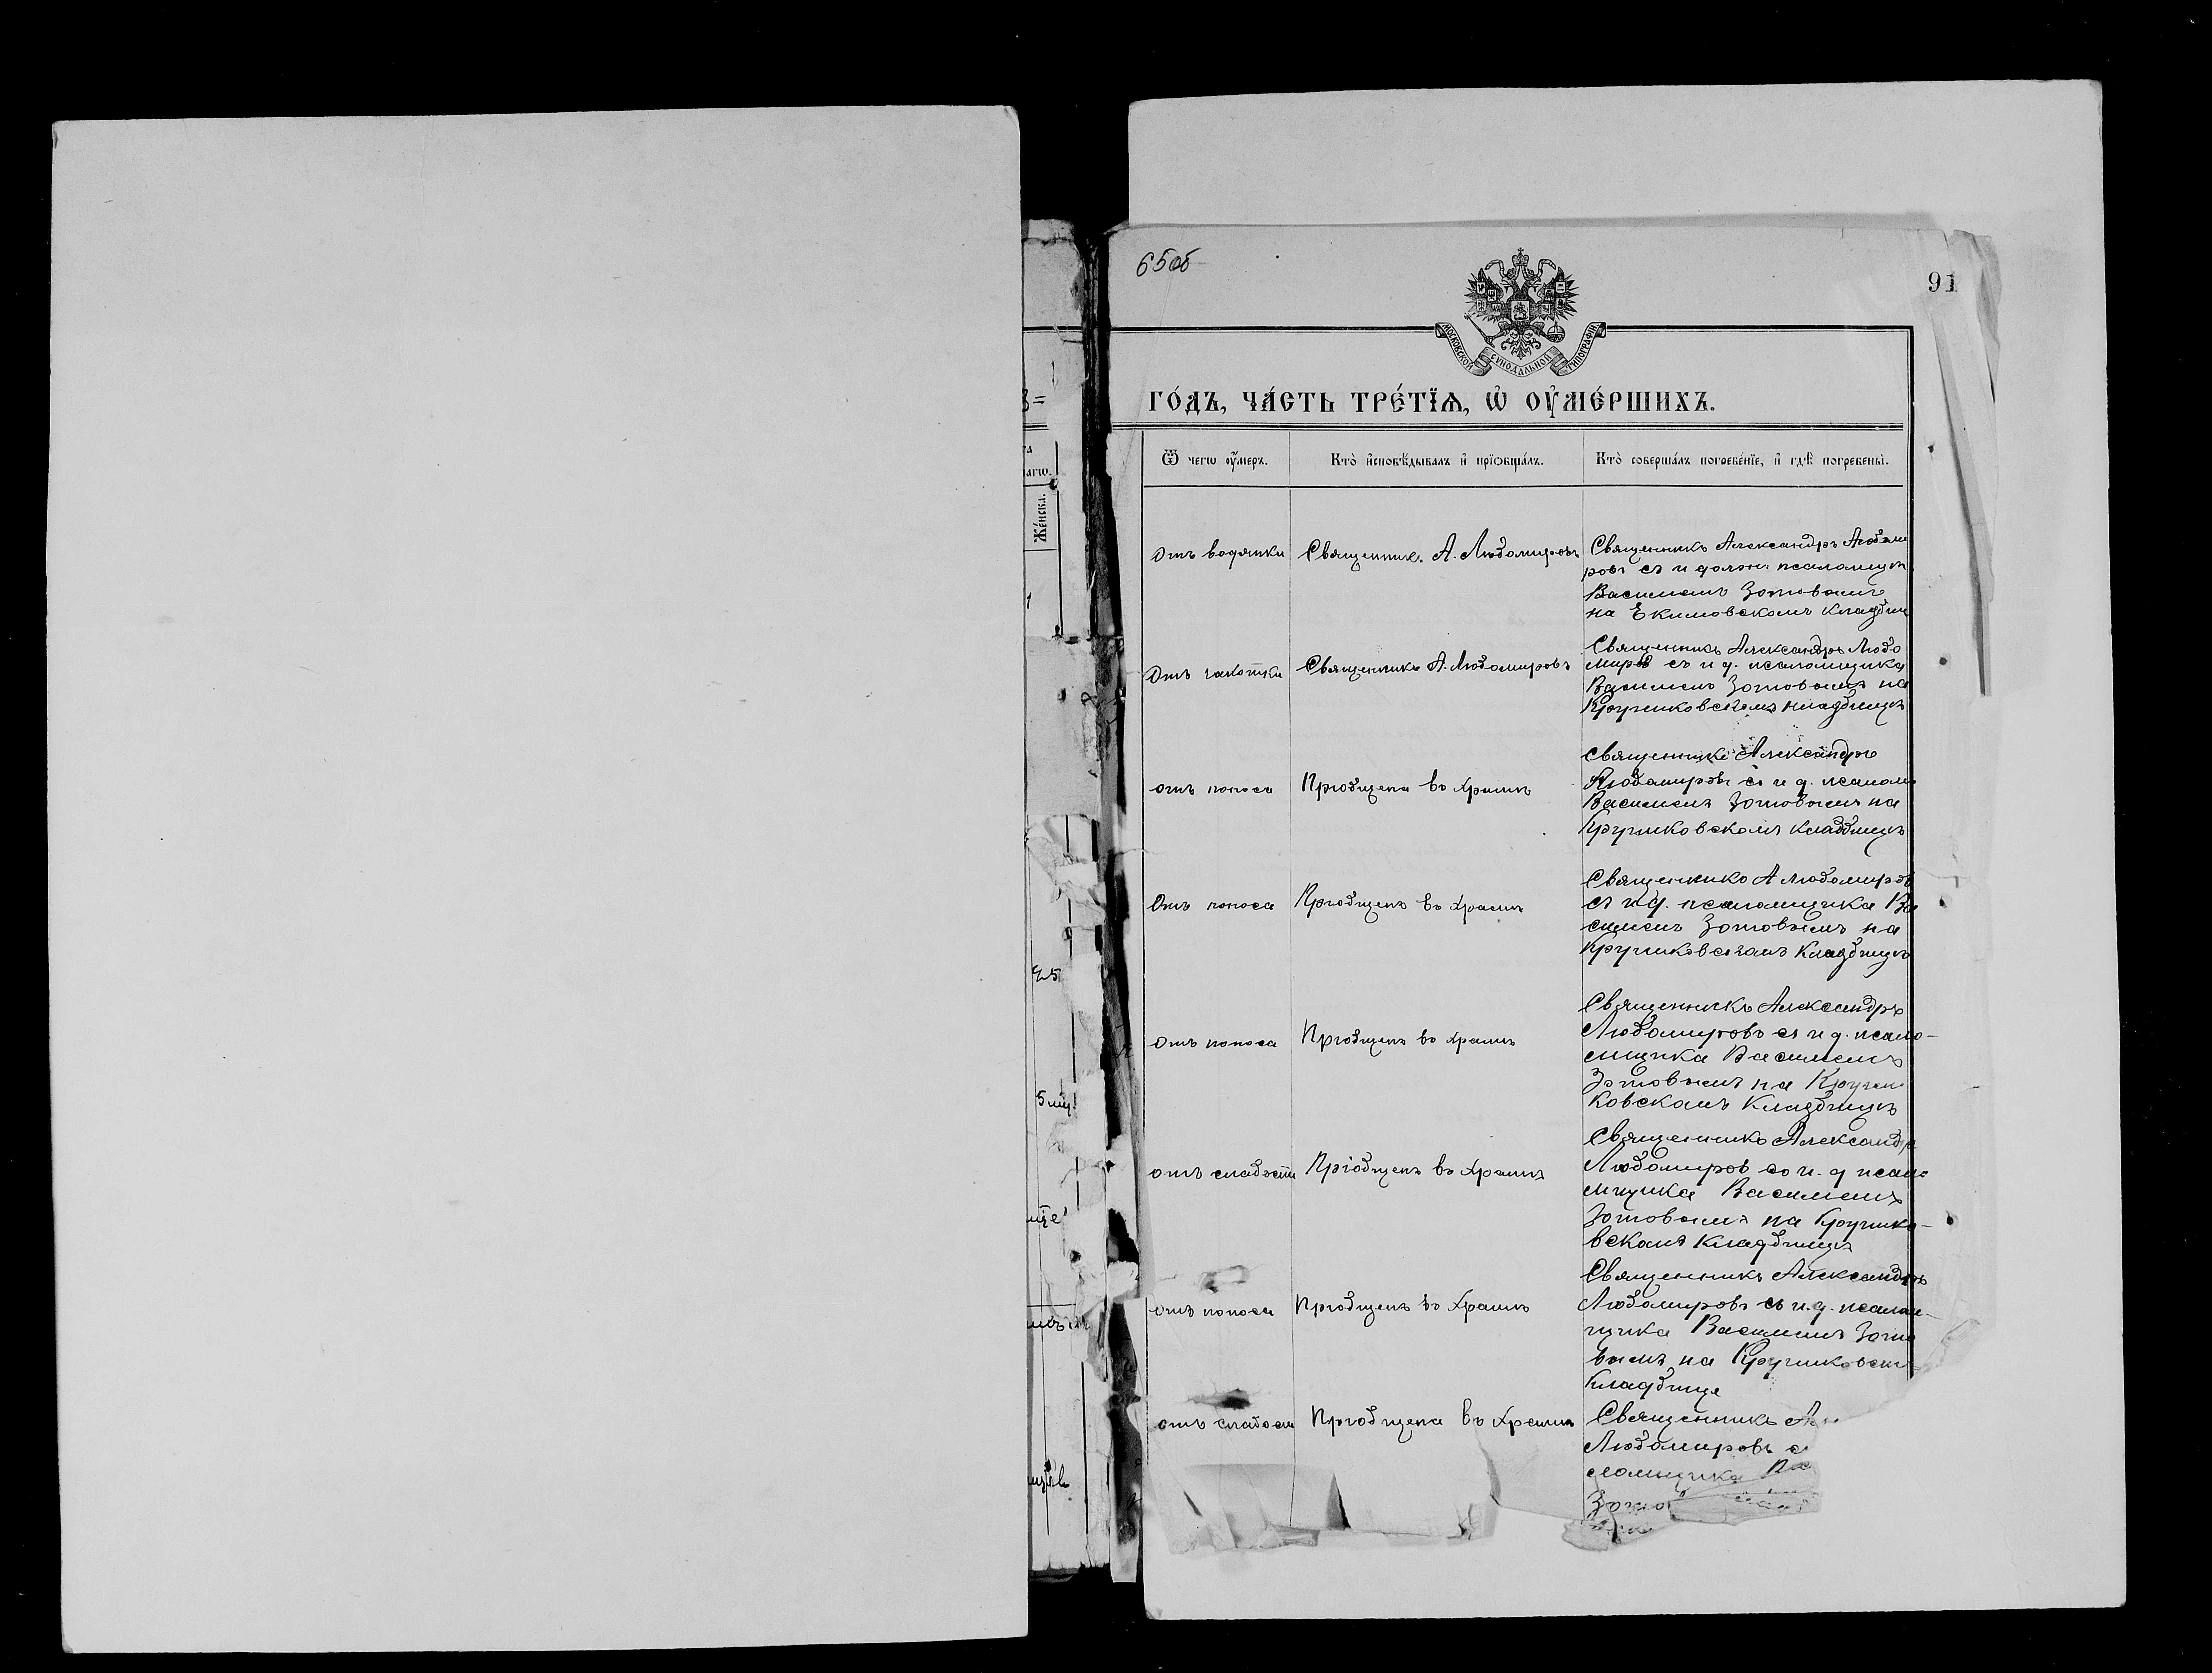 65об
91
МОСКОВСКОЙ СУНОДАЛЬНОЙ ТИПОГРАФІИ
ГО́ДЪ, ЧА́СТЬ ТРЕ́ТЇѦ, Ѡ҆ ОУ҆МЕ́РШИХЪ.
Ѿ чегѡ оу҆́меръ.
Кто̀ и҆сповѣ́дывалъ и҆ прїѡбща́лъ.
Кто̀ соверша́лъ погребе́нїе, и҆ гдѣ̀ погребены̀.
Же́нска.
Отъ водянки
Священник. А. Любомировъ
Священникъ Александръ Любоми
ровъ съ и должн псаломщи
Василіемъ Зотовымъ
на Екимовскомъ кладбищ
Отъ чахотки
Священникъ А. Любомировъ
Священникъ Александръ Любо
миров съ и д. псаломщика
Василіемъ Зотовымъ на
Кручиковскомъ кладбищѣ
отъ поноса
Пріобщена въ храмѣ
Священникъ Александръ
Любомировъ съ и д. псалом
Василіемъ Зотовымъ на
Кручиковскомъ кладбищѣ
Отъ поноса
Пріобщенъ въ храмѣ
Священникъ А Любомировъ
съ и д. псаломщика Ва
силіемъ Зотовымъ на
Кручиковскомъ кладбищѣ
Отъ поноса
Пріобщенъ въ храмѣ
Священникъ Александръ
Любомировъ съ и д. псало-
мщика Василіемъ
Зотовымъ на Кручи
ковскомъ кладбищѣ
отъ слабости
Пріобщенъ въ храмѣ
Священникъ Александр
Любомиров со и. д псало
мщика Василіемъ
Зотовымъ на Кручико-
вскомъ кладбищѣ
отъ поноса
Пріобщенъ въ храмѣ
Священникъ Александръ
Любомировъ съ и.д. псалом-
щика Василіемъ Зото
вымъ на Кручиковском
кладбище
отъ слабости
Пріобщена въ храмѣ
Священникъ Ал
Любомировъ с
ломщика
Зото